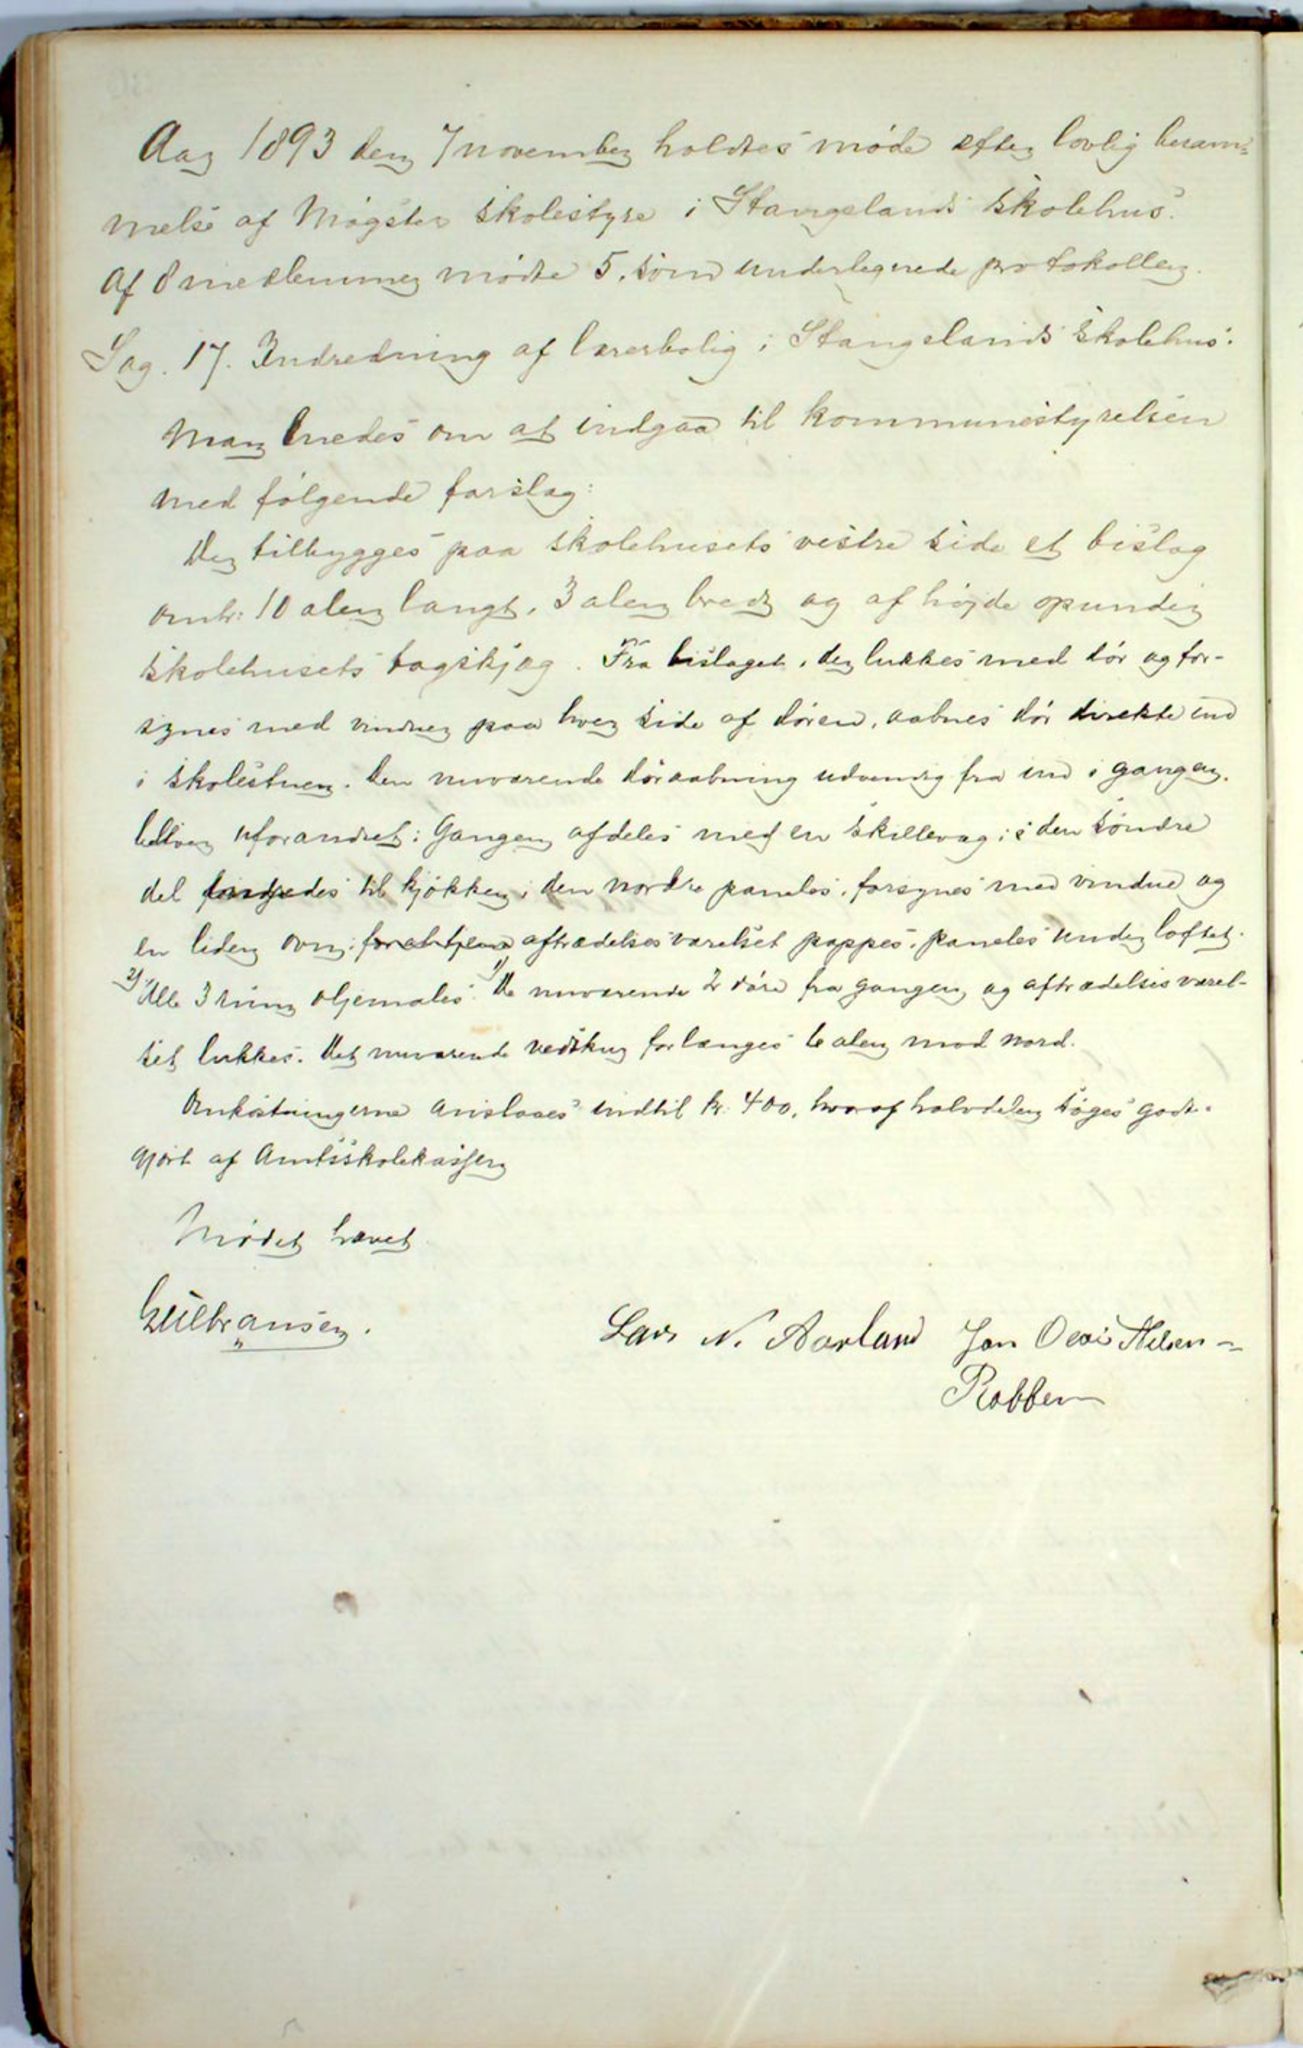 Aar 1893 den 7 november holdtes møde efter lovlig beram-
melse af Møgster skolestyre i Stangelands skolehus.
Af 8 medlemmer mødte 5, som underlegnede protokollen.
Sag. 17. Indredning af lærerbolig i Stangelands skolehus.
Man enedes om at indgaa til kommunestyrelsen
med følgende forslag:
Der tilbygges paa skolehusets vestre side et bislag
omtr. 10 alen langt, 3 alen bredt og af højde opunder
skolehusets tagskjæg. Fra bislaget, der lukkes med dør og for-
synes med vinduer paa hver side af døren, aabnes dør direkte ind
i skolestuen. Den nuværende døraabning udvendig fra ind i gangen
bliver uforandret: Gangen afdeles med en skillevæg; den søndre
del indredes til kjøkken, den nordre paneles, forsynes med vindue og
en liden ovn; aftrædelsesværelset pappes, paneles under loftet.
2) Alle 3 rum oljemales. 1) De nuværende 2 døre fra gangen og aftrædelsesværel-
set lukkes. Det nuværende vedskur forlænges 6 alen mod nord.
Omkostningerne anslaaes indtil kr. 400, hvoraf halvdelen søges godt-
gjort af Amtsskolekassen
Mødet hævet
Gulbransen.
Lars N. Aarland Jon Nilsen
Robben